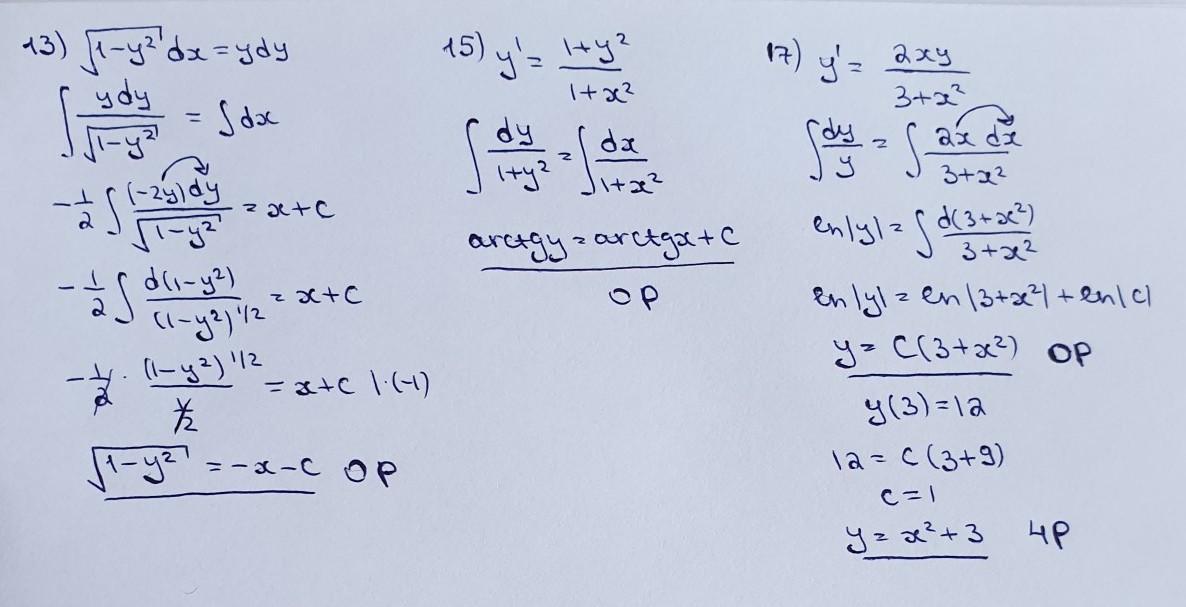 13) √(1-y²) dx = ydy
∫ ydy/√(1-y²) = ∫dx
-1/2 ∫ (-2y)dy/√(1-y²) = x+c
-1/2 ∫ d(1-y²)/(1-y²)^1/2 = x+c
-1/2 · (1-y²)^1/2 / 1/2 = x+c |·(-1)
√(1-y²) = -x-c OP
15) y' = (1+y²)/(1+x²)
∫ dy/(1+y²) = ∫ dx/(1+x²)
arctgy = arctgx + C
OP
17) y' = 2xy/(3+x²)
∫ dy/y = ∫ 2x dx/(3+x²)
ln|y| = ∫ d(3+x²)/(3+x²)
ln|y| = ln|3+x²| + ln|c|
y = C(3+x²) OP
y(3)=12
12 = C(3+9)
c = 1
y = x²+3 ЧР